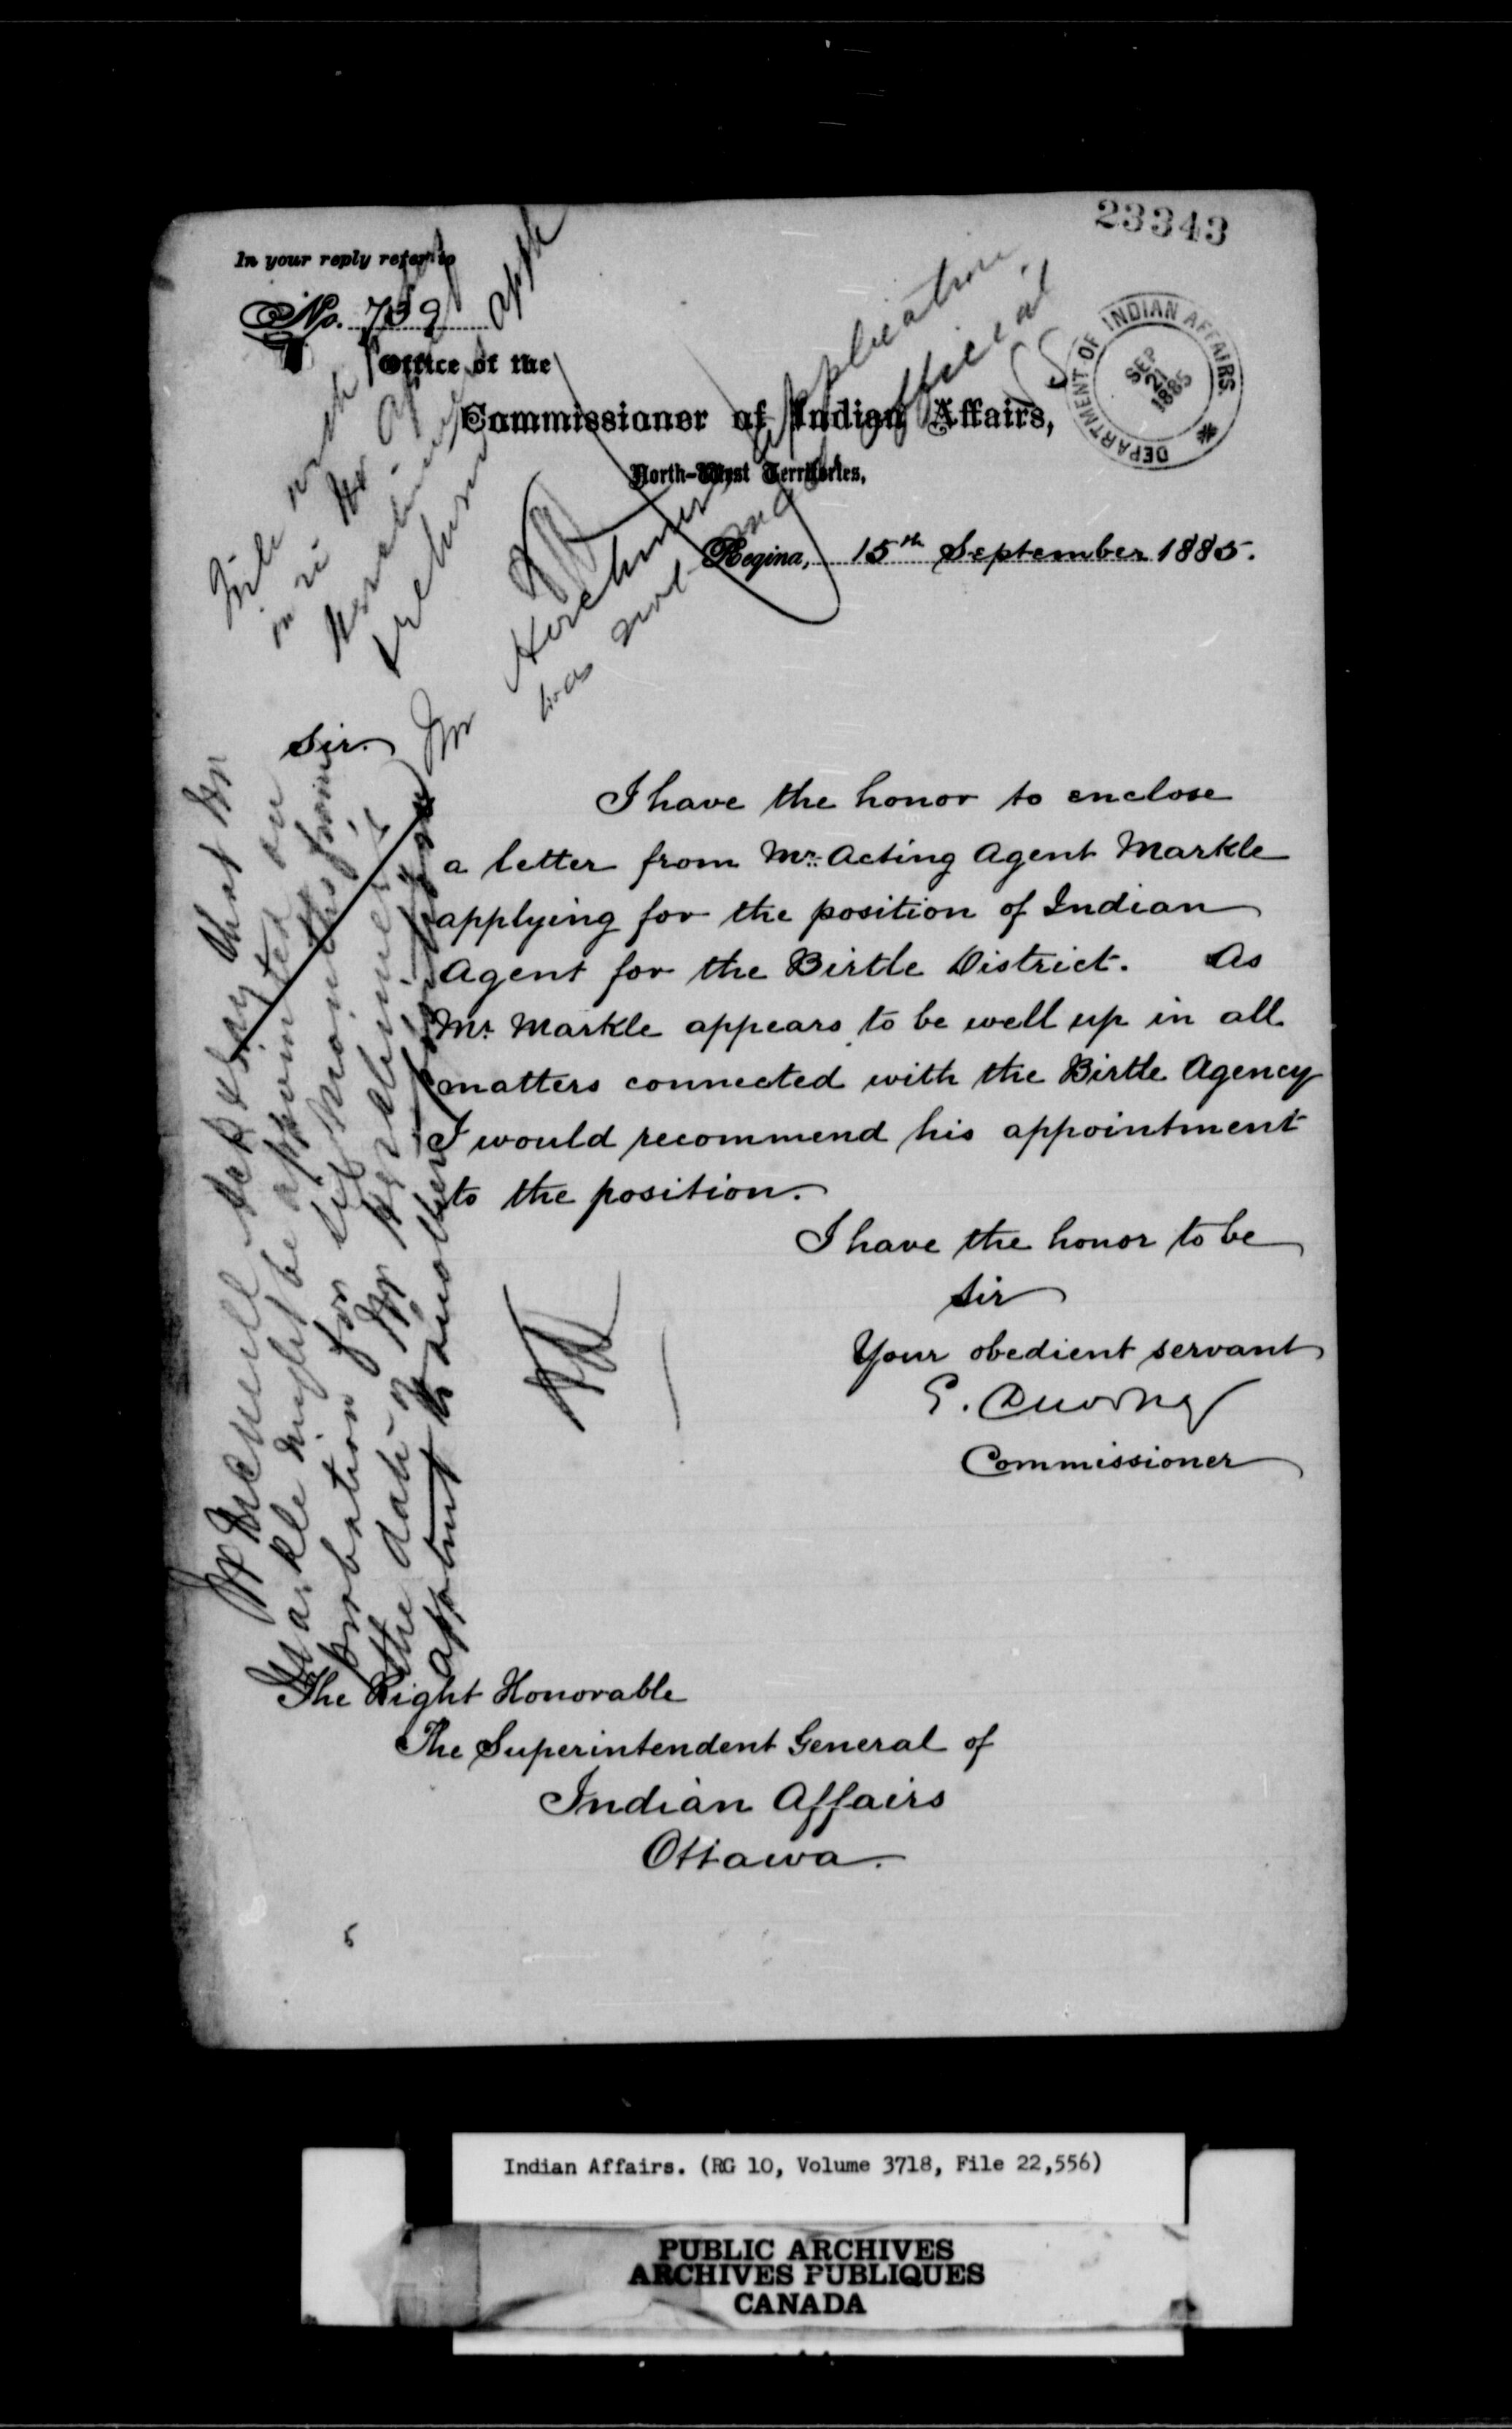 23343
In your reply refer to
No. 759
Office of the
Commissioner of Indian Affairs,
North-West Territories,
DEPARTMENT OF INDIAN AFFAIRS.
SEP
21
1885
Regina, 15th September 1885.
File with
in re Mr
Mr Herchmer's application
was not official
Sir.
I have the honor to enclose
a letter from Mr. Acting Agent Markle
applying for the position of Indian
Agent for the Birtle District. As
Mr. Markle appears to be well up in all
matters connected with the Birtle Agency
I would recommend his appointment
to the position.
I have the honor to be
Sir
Your obedient servant
E. Dewdney
Commissioner
Mr McNeill that Mr
Markle might be appointed on
probation for six months from
the date of Mr Herchmer's
appointment to another
The Right Honorable
The Superintendent General of
Indian Affairs
Ottawa.
Indian Affairs. (RG 10, Volume 3718, File 22,556)
PUBLIC ARCHIVES
ARCHIVES PUBLIQUES
CANADA